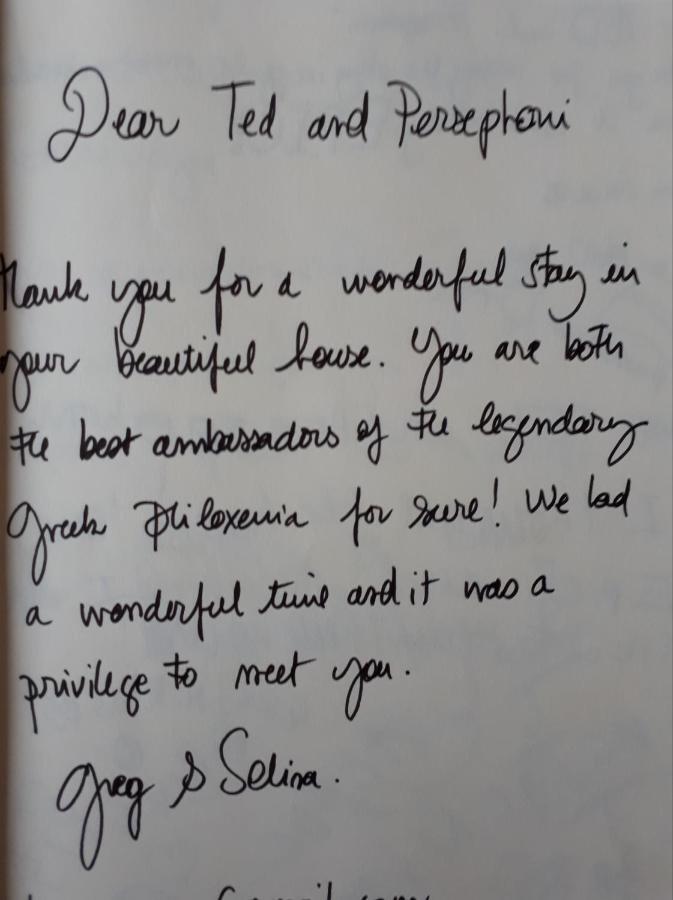 Dear Ted and Persephoni
Thank you for a wonderful stay in
your beautiful house. You are both
the best ambassadors of the legendary
Greek philoxenia for sure! We had
a wonderful time and it was a
privilege to meet you.
Greg & Selina.